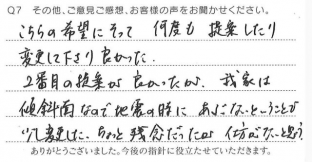 Q7 その他、ご意見ご感想、お客様の声をお聞かせください。
こちらの希望にそって 何度も 提案したり
変更して下さり良かった。
2番目の提案が良かったが、我家は
傾斜面なので地震の時に あぶないということで
少し変更した。ちょっと残念だったが 仕方がないと思う
ありがとうございました。今後の指針に役立たせていただきます。